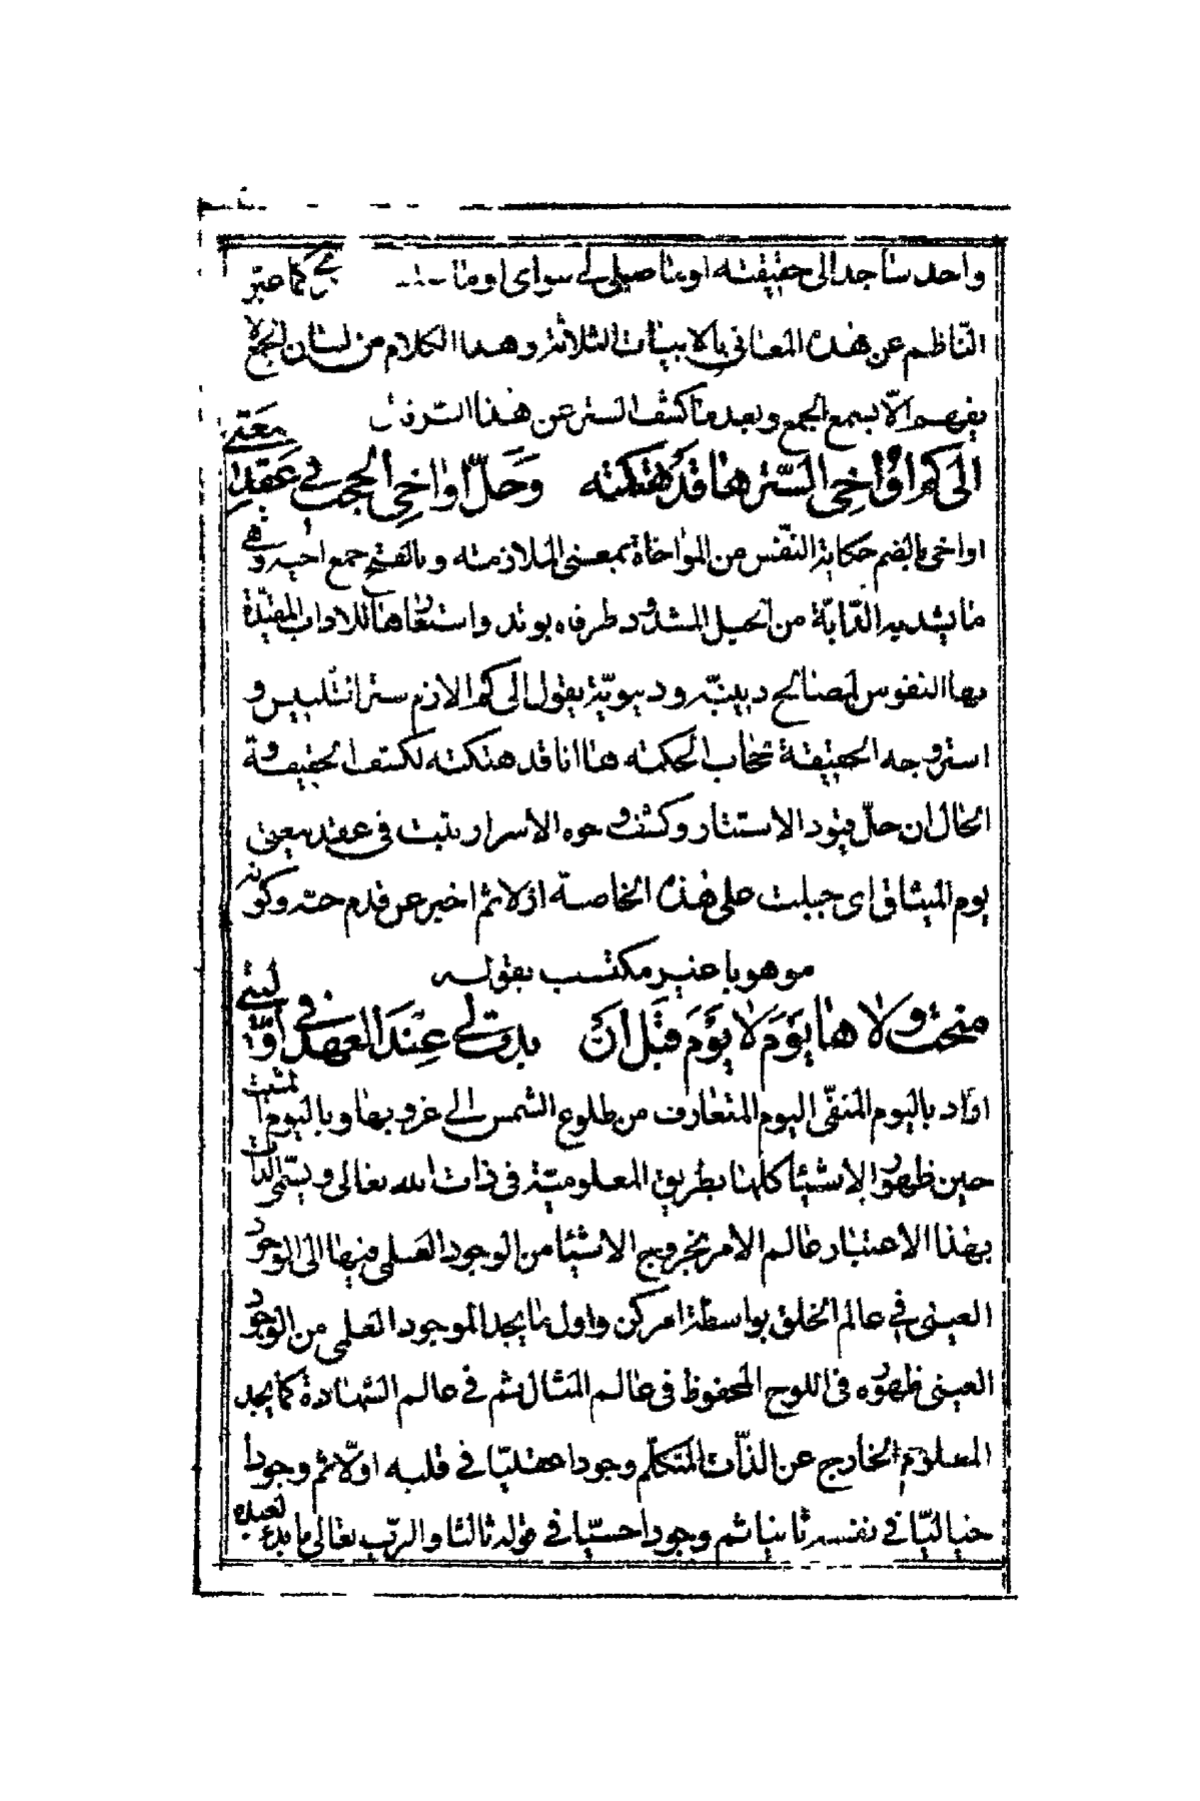 واحد ساجد الى حقيقته او ما صلى لى سواى او ما كما عبّر
النّاظم عن هذه المعانى بالابيات الثلاثة وهذا الكلام من لسان الجمع لا
يفهم الّا بسمع الجمع وبعد ما كشف الستر عن هذا السّر قال
الى كم اواخى السّتر ها قد هتكته وحلّ اواخى الحجب فى عقد بيعتى
اواخى بالضم حكاية النّفس من المواخاة بمعنى الملازمته وبالفتح جمع اخية وهى
ما يشد به الدّابّة من الحبل المشدود طرفاه بوتد واستعارها للاداب المقيّدة
بها النفوس لمصالح دينيّة ودنيويّة يقول الى كم الازم ستر التلبيس و
استر وجه الحقيقة بحجاب الحكمته ها انا قد هتكته لكشف الحقيقة و
الحال ان حلّ قيود الاستتار وكشف وجوه الاسرار يثبت فى عقد بيعتى
يوم الميثاق اى جبلت على هذه الخاصة ازلا ثم اخبر عن قدم حبّه وكونه
موهوبا غير مكتسب بقوله
منحت ولاها يوم لا يوم قبل ان بدت لى عند العهد فى اوّليّتى
اراد باليوم المنفّى اليوم المتعارف من طلوع الشمس الى غروبها وباليوم المثبت
حين ظهور الاشيّا كلها بطريق المعلوميّة فى ذات الله تعالى ويسمّى الذات
بهذا الاعتبار عالم الامر بخروج الاشيّا من الوجود العلمى فيها الى الوجود
العينى فى عالم الخلق بواسطة امر كن واول ما يجد الموجود العلمى من الوجود
العينى ظهوره فى اللوح المحفوظ فى عالم المثال ثم فى عالم الشهادة كما يجد
المعلوم الخارج عن الذّات المتكلّم وجودا عقليّا فى قلبه اوّلا ثم وجودا
خياليّا فى نفسه ثانيا ثم وجودا حسّيّا فى قوله ثالثا والربّ تعالى ما